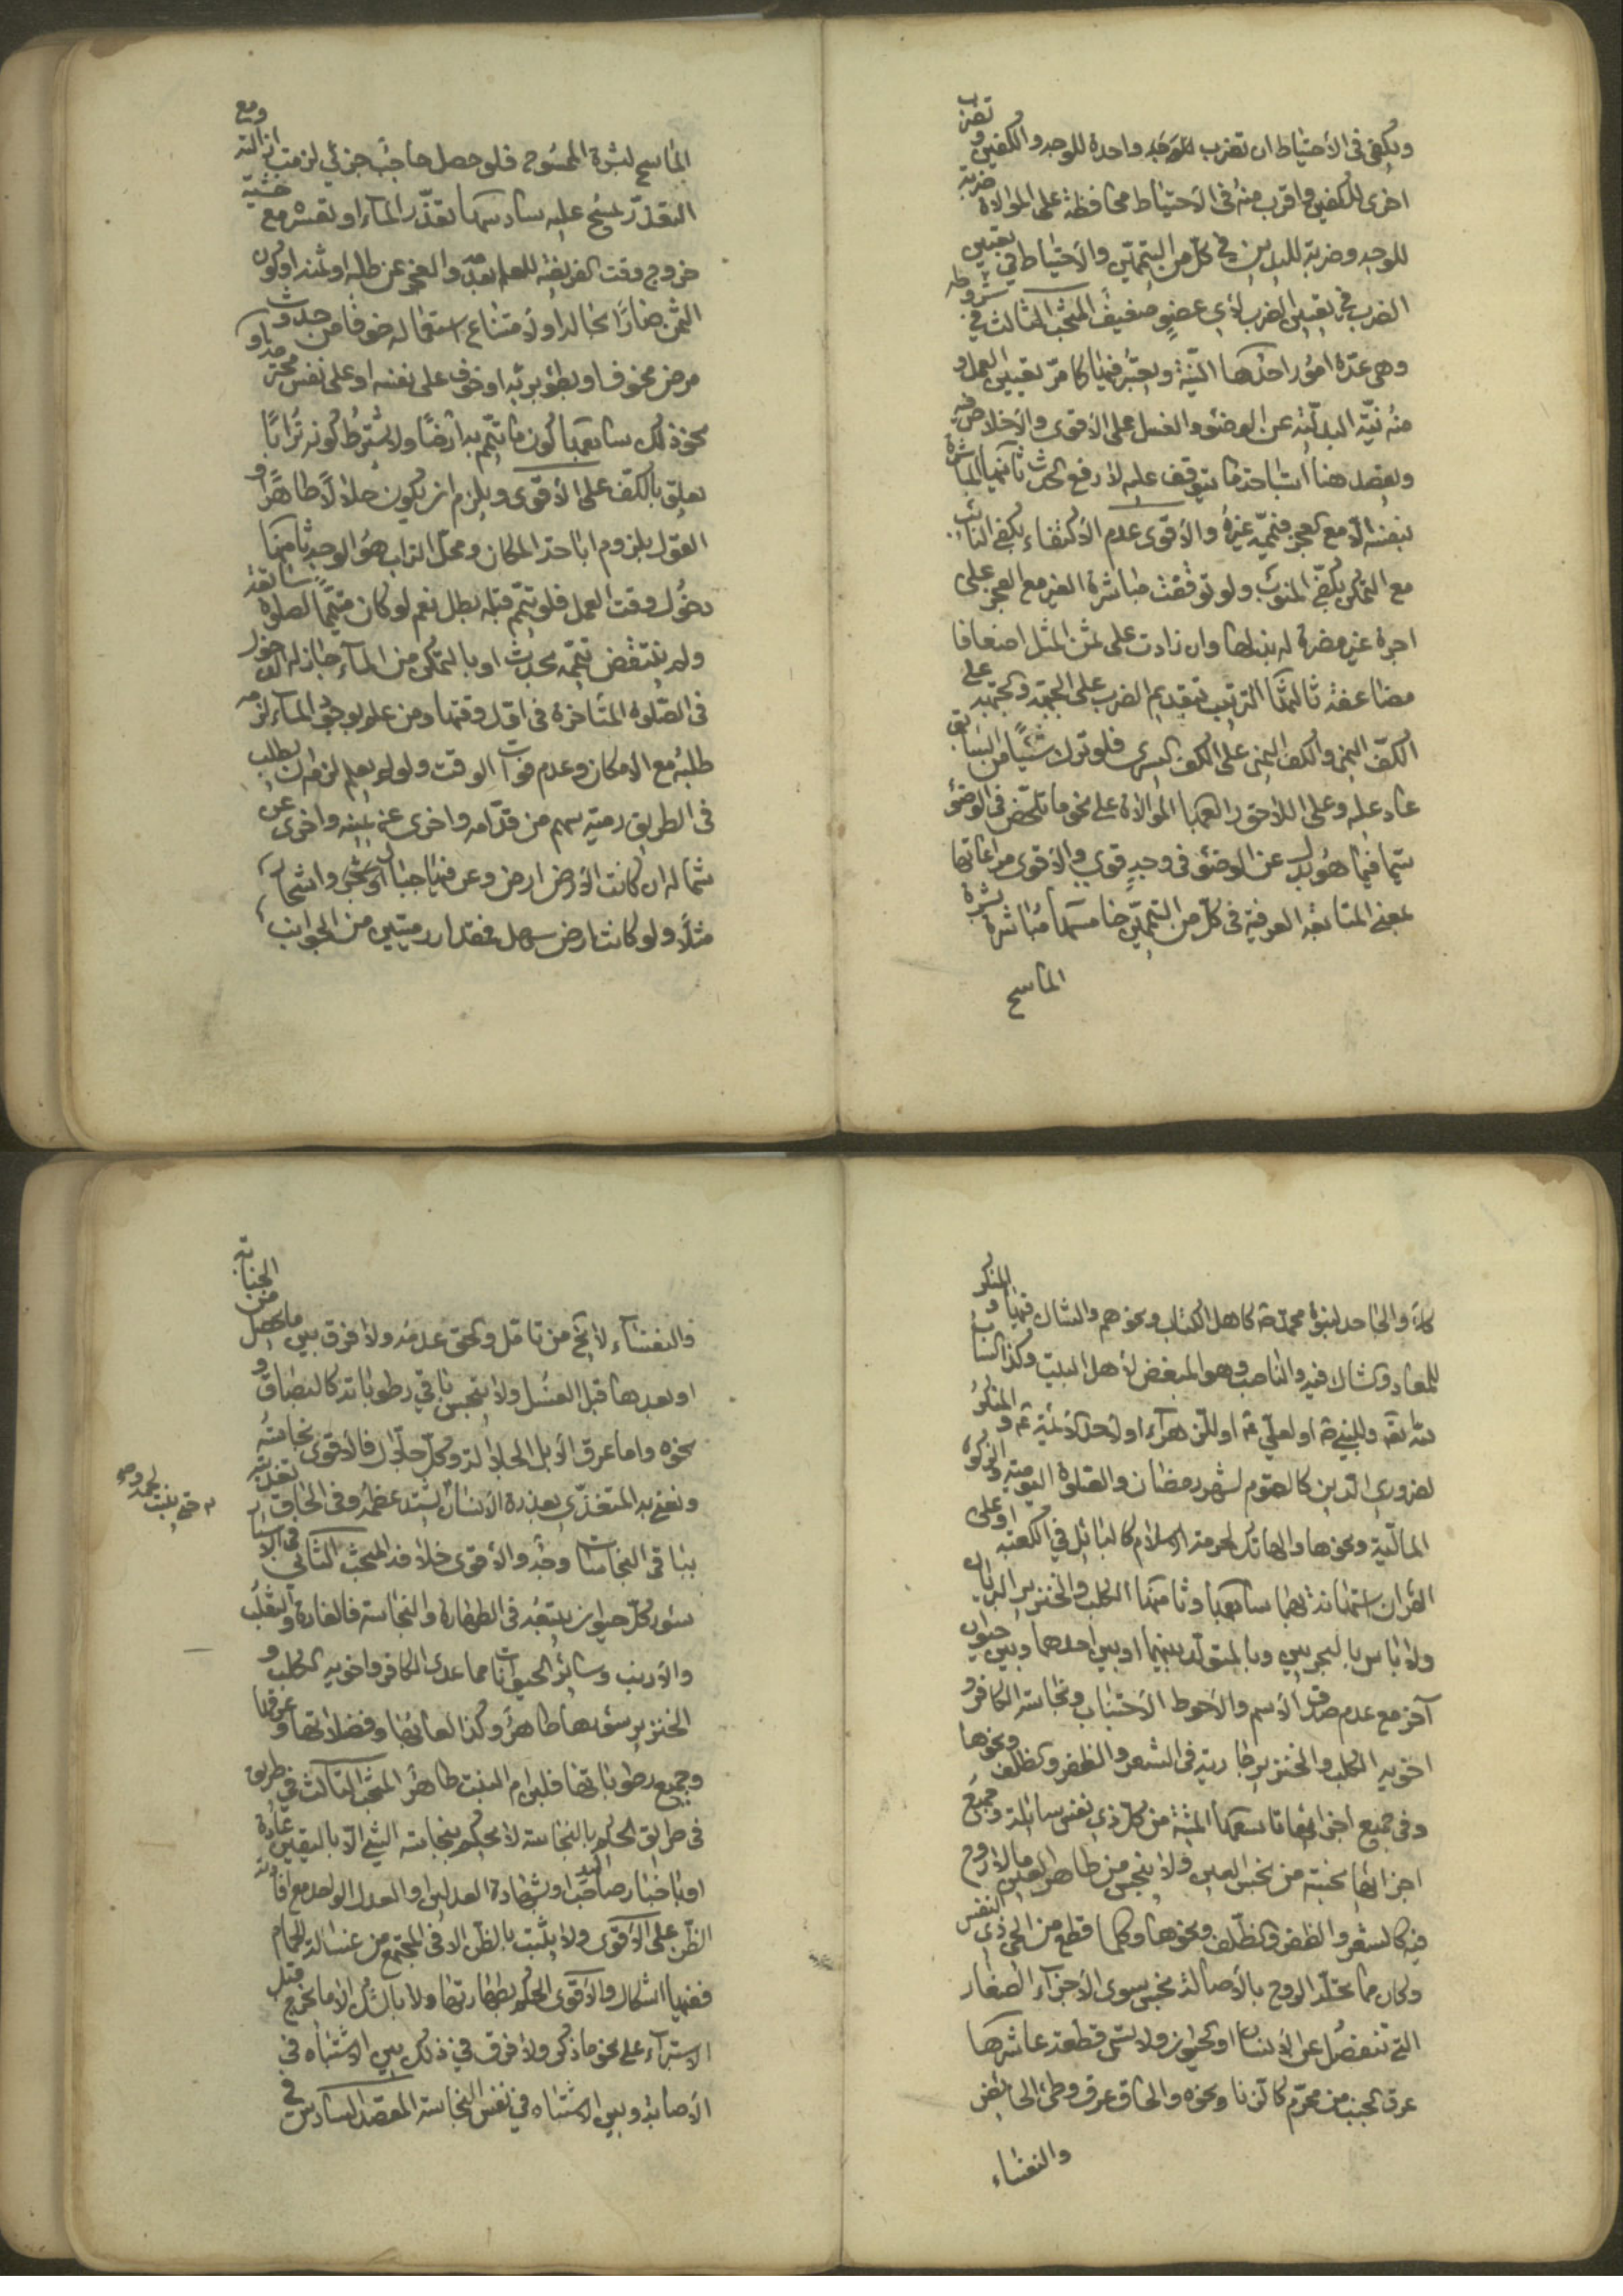 ويكفي في الأحتياط ان تضرب للوجه واحدة للوجه والكفين وتضرب
اخرى للكفين واقرب منه في الاحتياط محافظة على الموالاة ضربة
للوجه وضربة لليدين في كل من التيممين والأحتياط في تعيين
الضرب في تعيين الضرب لأي عضو ضعيف المبحث الثالث في شروطه
وهي عدة امور احدها النية ويعتبر فيها كما مر تعيين العمل و
منه نية البدلية عن الوضوء والغسل على الأقوى والأخلاص فيه
ويقصد هنا استباحة ما يتوقف عليه لا رفع الحدث ثانيها المباشرة
بنفسه الا مع العجز فييممه غيره والأقوى عدم الأكتفاء بكفي النائب
مع التمكن بكفي المنوب ولو توقفت مباشرة الغير مع العجز على
اجرة غير مضرة له بذلها وان زادت على ثمن المثل اضعافا
مضاعفة ثالثها الترتيب بتقديم الضرب على الجبهة والجبهة على
الكف اليمنى والكف اليمنى على الكف اليسرى فلو ترك شيئا من السابق
عاد عليه وعلى اللاحق رابعها الموالاة على نحو ما تلخص في الوضوء
سيما فيما هو بدل عن الوضوء في وجه قوي والأقوى مراعاتها
بمعنى المتابعة العرفية في كل من التيممين خامسها مباشرة بشرة
الماسح
الماسح لبشرة الممسوح فلو حصل حاجب جزئي لزمت ازالته ومع
التعذر يمسح عليه سادسها تعذر الماء او تعسره مع خشية
خروج وقت الفريضة للعلم بعدمه والعجز عن طلبه او ثمنه او لكون
الثمن ضارا بحاله او لامتناع استعماله خوفا من حدوث
مرض مخوف او بطؤ برئه او خوف على نفسه او على نفس محترمة او
نحو ذلك سابعها كون ما يتيمم به ارضا ولا يشترط كونه ترابا
يعلق بالكف على الأقوى ويلزم ان يكون حلالا طاهرا و
القول بلزوم اباحة المكان ومحل التراب هو الوجه ثامنها
دخول وقت العمل فلو تيمم قبله بطل نعم لو كان متيمما لصلوة سابقة
ولم ينتقض تيممه بحدث او بالتمكن من الماء جاز له الدخول
في الصلوة المتأخرة في اول وقتها ومن علم بوجود الماء لزمه
طلبه مع الامكان وعدم فوات الوقت ولو لم يعلم لزمه ان يطلب
في الطريق رمية سهم من قدامه واخرى عن يمينه واخرى عن
شماله ان كانت الأرض ارض وعر فيها جبال او نحوى واشجار
مثلا ولو كانت ارض سهل فمقدار رميتين من الجوانب
كلا والجاحد لنبوة محمد ص كاهل الكتاب ونحوهم والشاك فيها والمنكر
للمعاد والشاك فيه والناصب وهو المبغض لأهل البيت وكذا الساب
لله تعه وللنبي ص او لعلي ع او للزهراء او لأحد الأئمة ع والمنكر
لضروري الدين كالصوم لشهر رمضان والصلوة اليومية والزكوة
المالية ونحوها والهاتك لحرمة الاسلام كالبائل في الكعبة او على
القران استهانة بهما سابعها وثامنها الكلب والخنزير البريان
ولا بأس بالبحريين وبالمتولد بينهما او بين احدهما وبين حيوان
آخر مع عدم صدق الأسم والأحوط الأجتناب ونجاسة الكافر و
اخويه الكلب والخنزير جارية في الشعر والظفر والظلف ونحوها
وفي جميع اجزائها تاسعها الميتة من كل ذي نفس سائلة وجميع
اجزائها نجسة من نجس العين ولا ينجس من طاهر العين مالا روح
فيه كالشعر والظفر والظلف ونحوها وكلما قطع من الحي ذي النفس
وكان مما تحله الروح بالأصالة نجس سوى الأجزاء الصغار
التي تنفصل عن الأنسان او الحيوان ولا تسمى قطعة عاشرها
عرق الجنب من محرم كالزنا ونحوه والحاق عرق وطي الحائض
والنفساء
والنفساء لا يخ من تأمل والحق عدمه ولا فرق بين ما يحصل من الجنابة
او بعدها قبل الغسل ولا ينجس باقي رطوباته كالبصاق و
نحوه واما عرق الأبل الجلالة وكل جلال فالأقوى نجاسته
ونعني به المتغذي بعذرة الأنسان يشتد عظمه وفي الحاق تغذيه
بباقي النجاسات وجه والأقوى خلافه المبحث الثاني في الأسئار
سؤر كل حيوان يتبعه في الطهارة والنجاسة فالفارة والثعلب
والأرنب وسائر الحيوانات مما عدى الكافر واخويه الكلب و
الخنزير سؤرها طاهر وكذا لعابها وفضلاتها وعرقها
وجميع رطوباتها فلبن ام البنت طاهر المبحث الثالث في طريق
في طريق الحكم بالنجاسة لا يحكم بنجاسة الشي الا باليقين عادة
او باخبار صاحب اليد او بشهادة العدلين او العدل الواحد مع افادته
الظن على الأقوى ولا يثبت بالظن الا في المجتمع من غسالة الحمام
ففيها اشكال والأقوى الحكم بطهارتها ولا بالشك الا ما يخرج قبل
الاستبراء على نحو ما ذكر ولا فرق في ذلك بين الاشتباه في
الأصابة وبين الاشتباه في نفس النجاسة المقصد السادس في